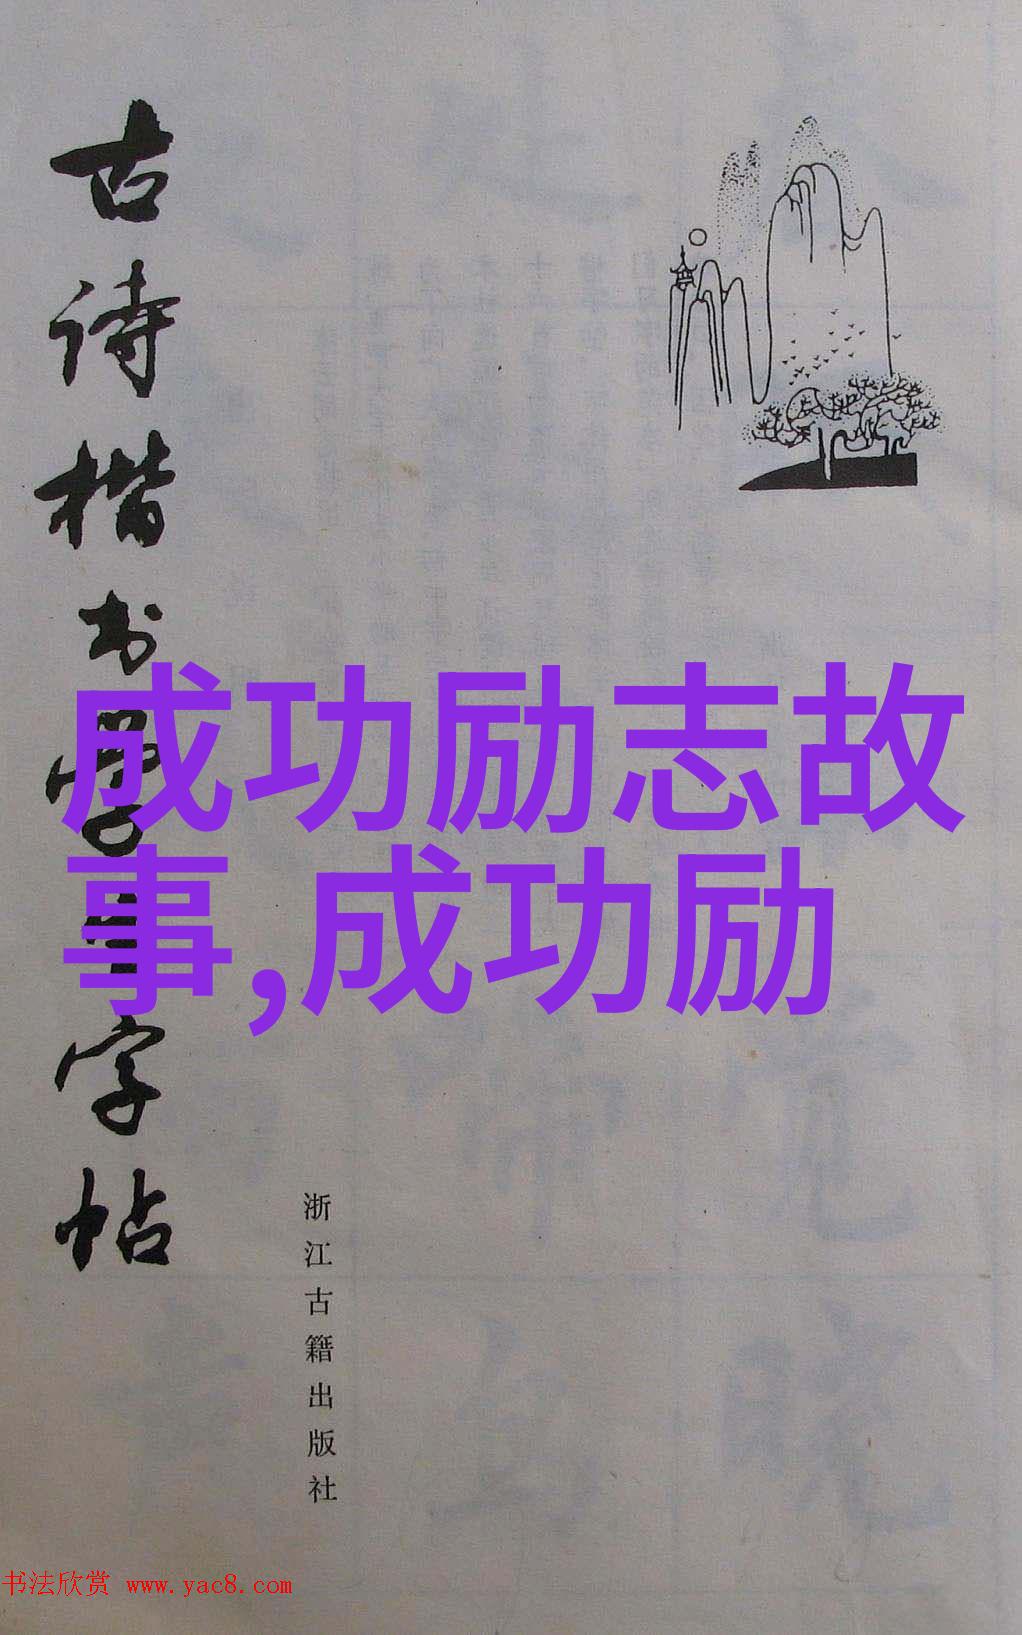 古诗楷书学字帖
成功励志故
事,成功励
浙江古籍出版社
书法欣赏 www.yac8.com